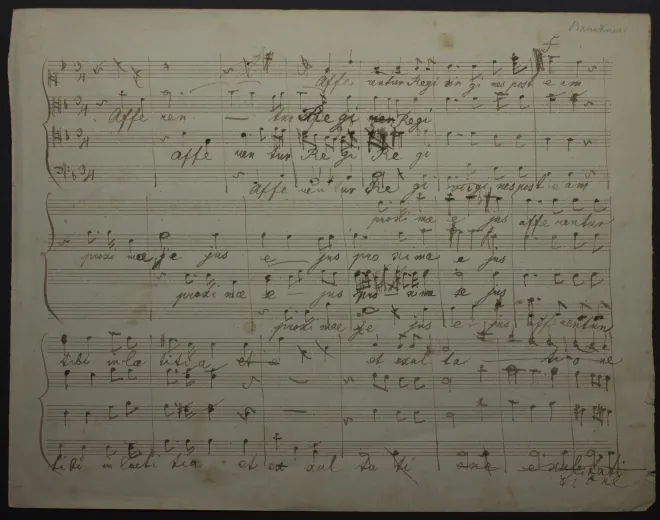 Bruckner
f
Affe rentur Regi vir gi nes post e am
Affe ren — tur Re gi Regi
affe ren tur Re gi Re gi
Affe ren tur Re gi virgi nes post e am
proxi mae e jus afferentur
proxi mae e jus e jus proximae e jus
proxi mae e — jus pro — xi mae e jus
proxi mae e jus e — jus afferentur
tibi in lae titia et e et exul ta tiro ne
tibi in laeti tia et ex sul ta ti one